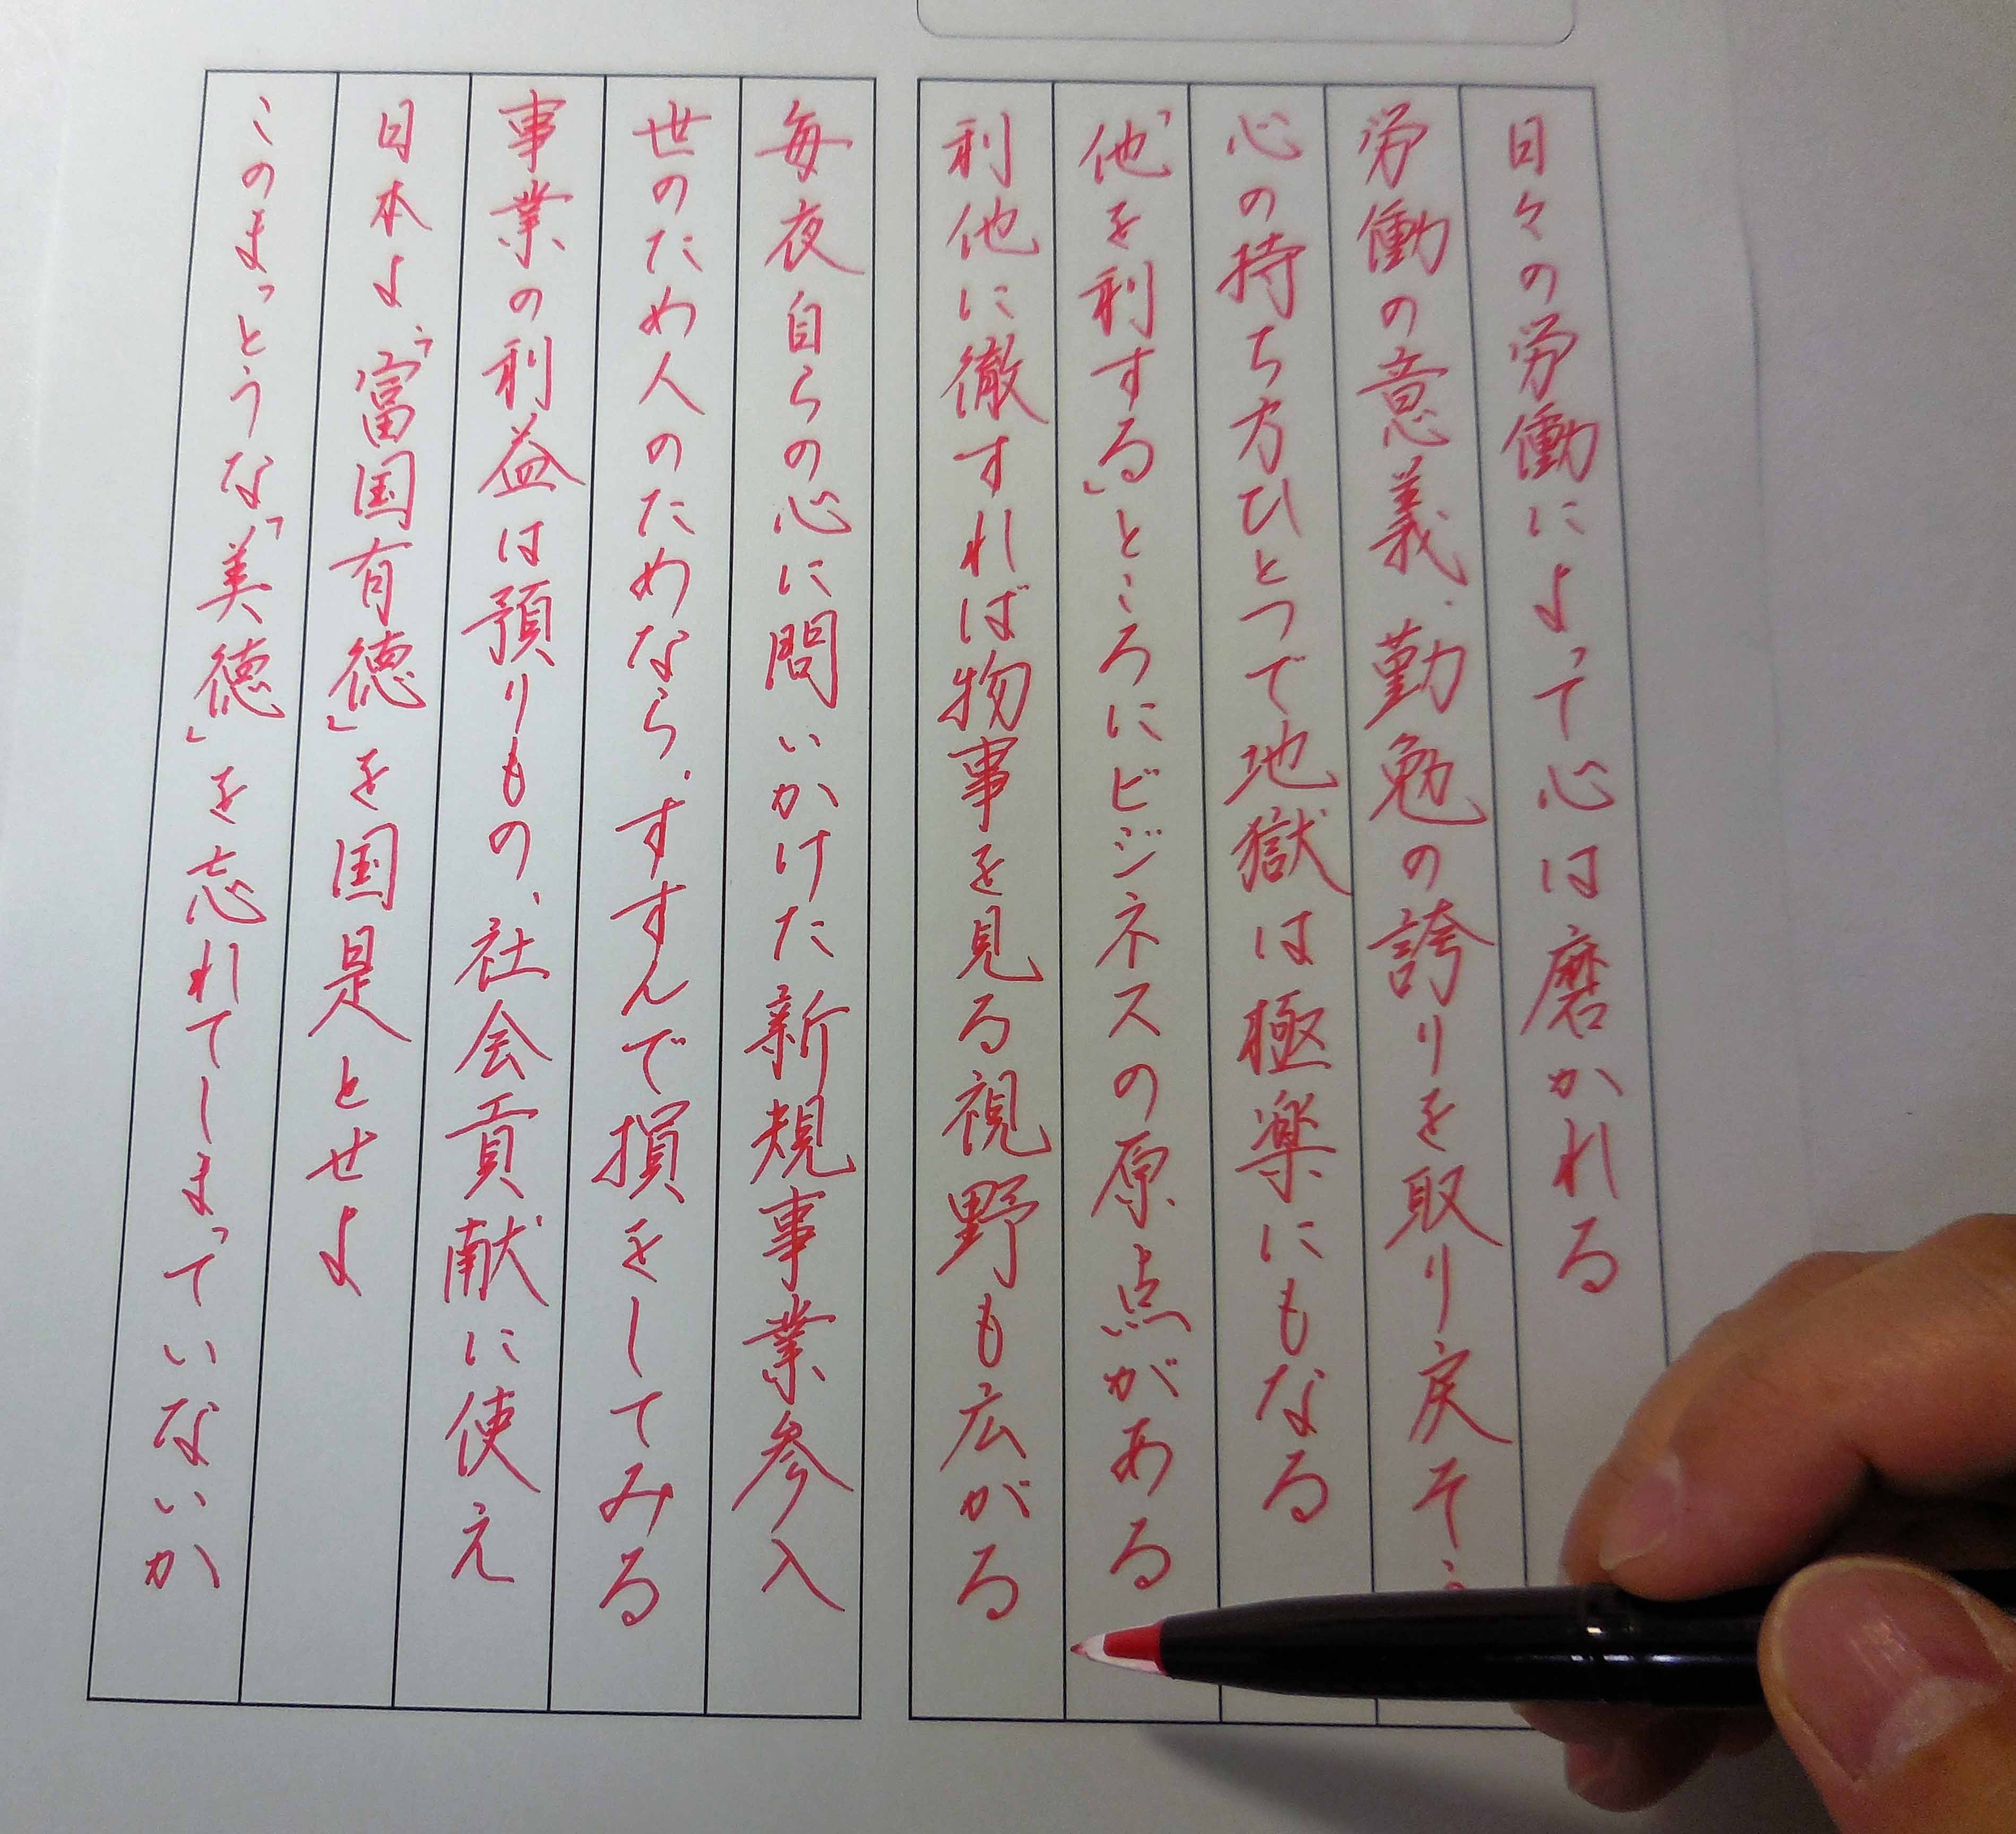 日々の労働によって心は磨かれる
労働の意義、勤勉の誇りを取り戻そ
心の持ち方ひとつで地獄は極楽にもなる
「他を利する」ところにビジネスの原点がある
利他に徹すれば物事を見る視野も広がる
毎夜自らの心に問いかけた新規事業参入
世のため人のためなら、すすんで損をしてみる
事業の利益は預りもの、社会貢献に使え
日本よ、「富国有徳」を国是とせよ
このまっとうな「美徳」を忘れてしまっていないか